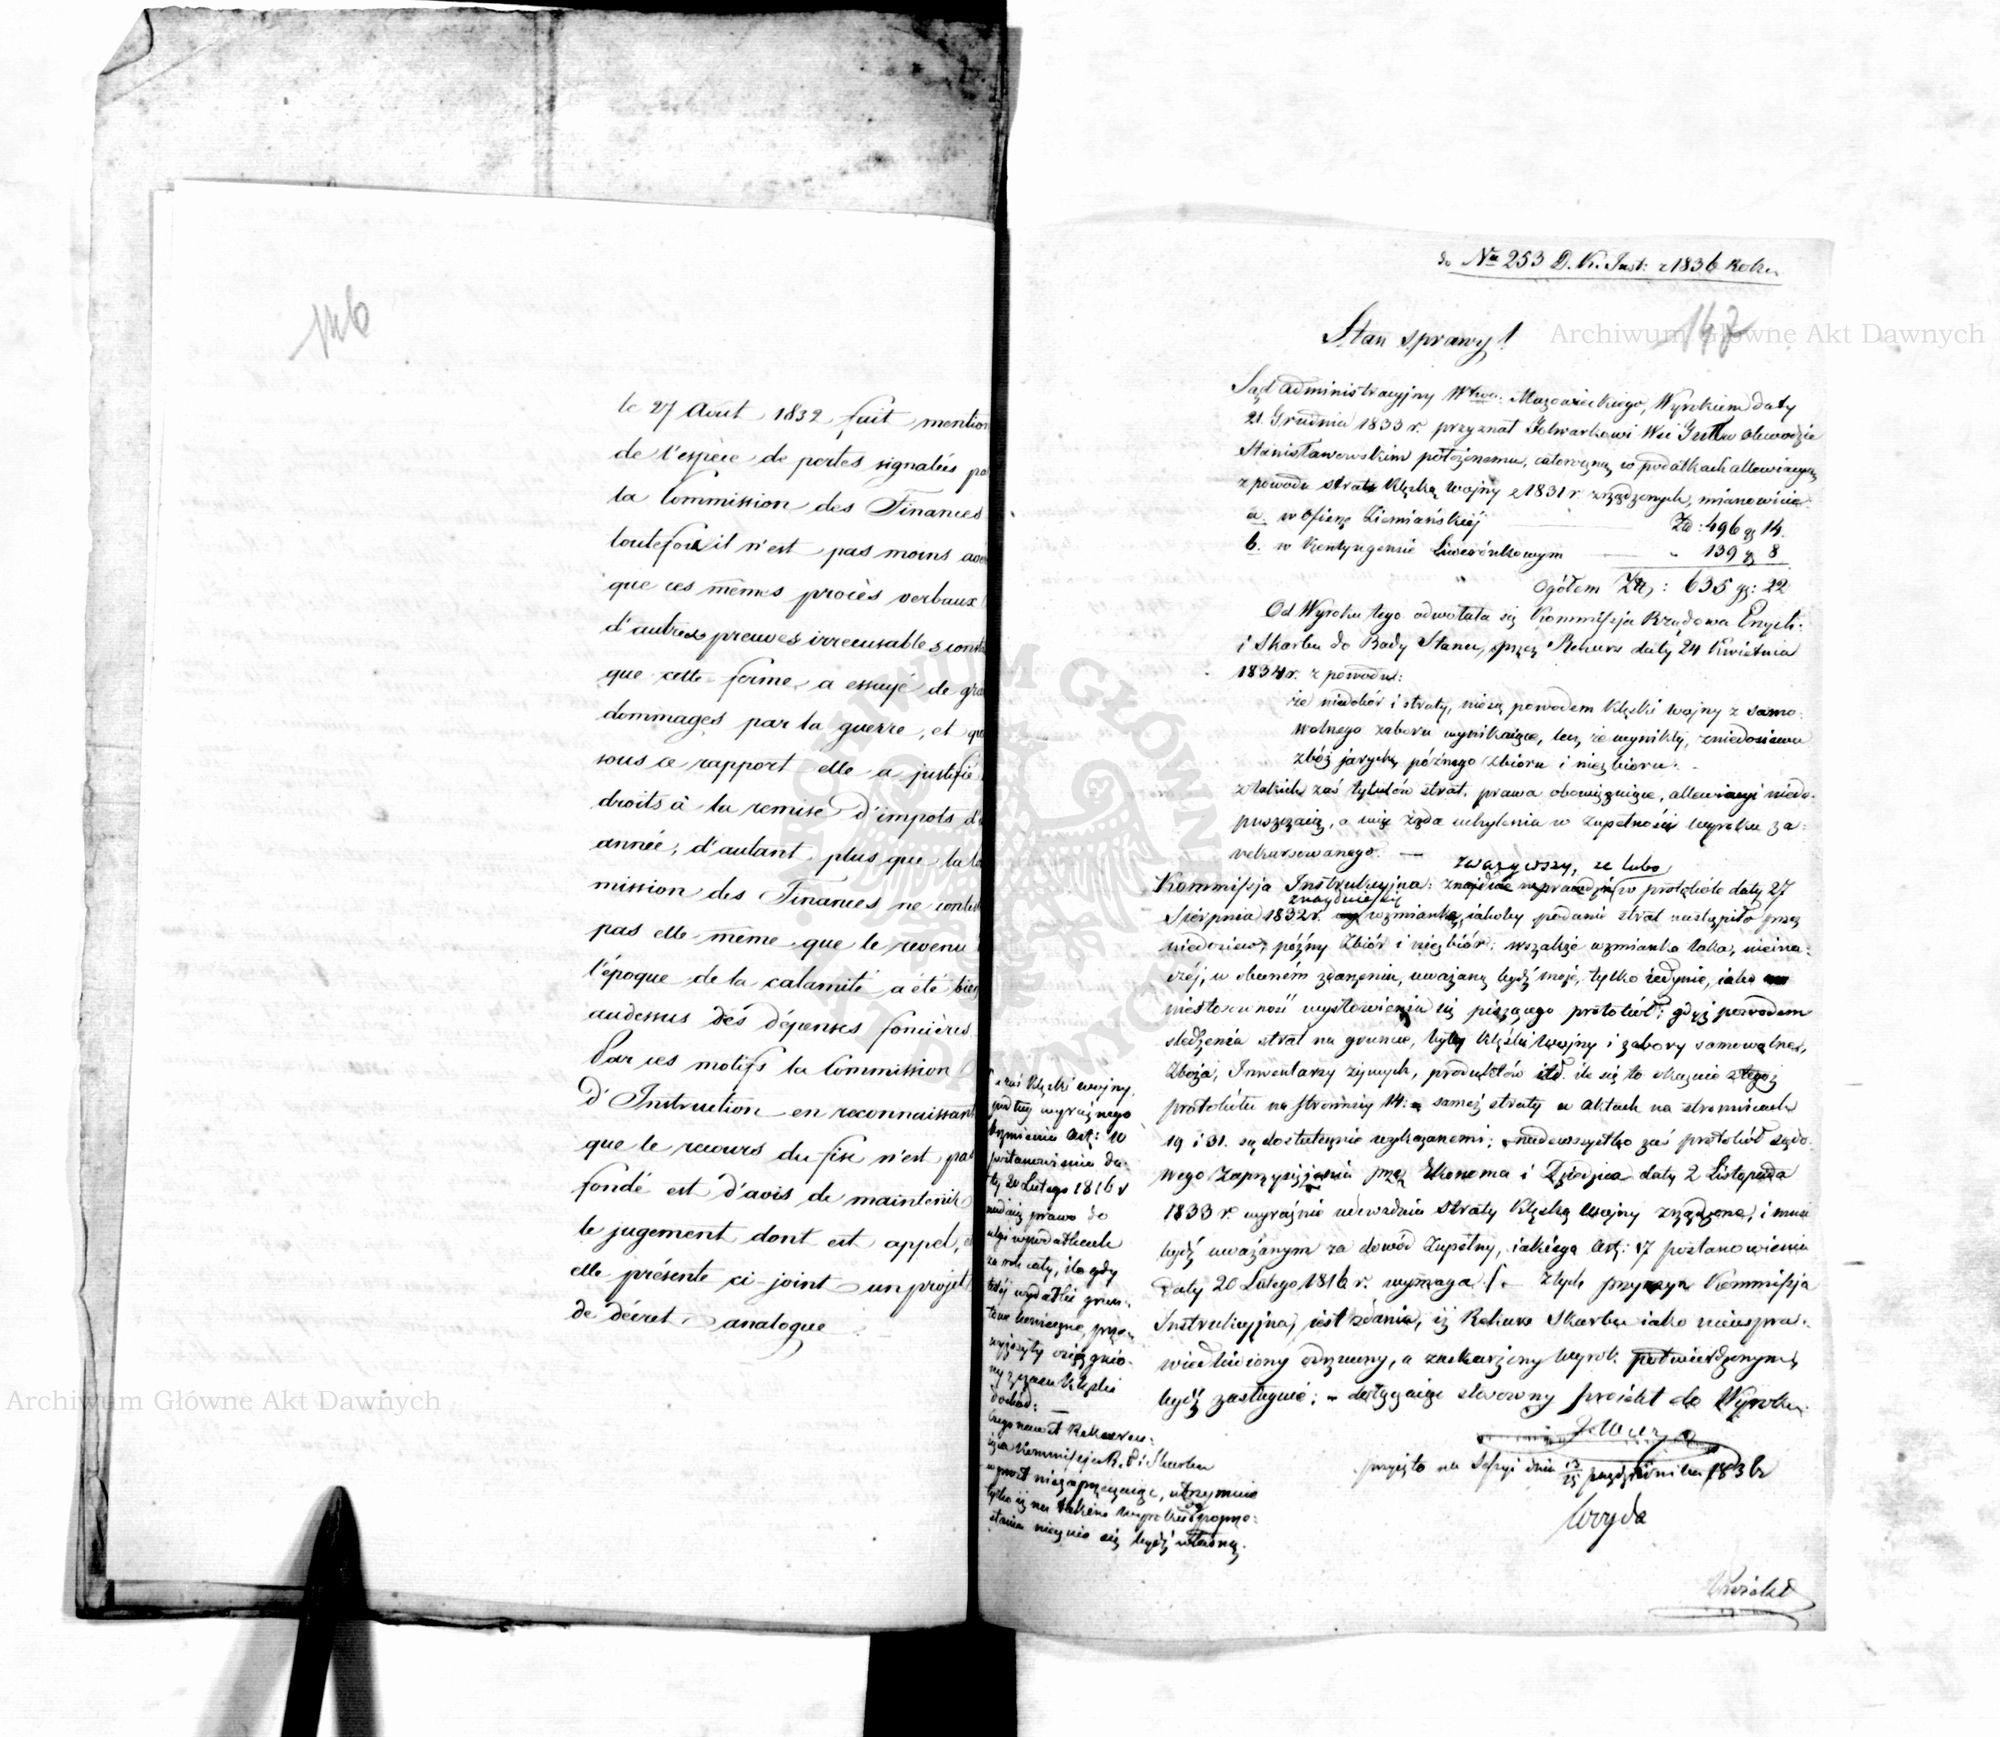 146
le 27 Août 1832 fait mention
de l'espèce de pertes signalées pa
la Commission des Finances
toutefois il n'est pas moins avé
que ces mêmes procès verbaux
d'autres preuves irrecusables const
que cette ferme a essuyé de gra
dommages par la guerre, et qu
sous ce rapport elle a justifié
droits à la remise d'impots d'u
année, d'autant plus que la Co
mission des Finances ne contest
pas elle même que le revenu
l'époque de la calamité a été bien
audessus des dépenses foncières.
Par ces motifs la Commission
D'Instruction en reconnaissant
que le recours du fisc n'est pas
fondé est d'avis de maintenir
le jugement dont est appel, e
elle présente ci-joint un projet
de décret analogue
do Nru 253 D. K. Inst: z 1836 Roku
147
Stan sprawy!
Sąd Administracyjny Wtwa. Mazowieckiego, Wyrokiem daty
21. Grudnia 1833 r. przyznał Folwarkowi Wsi w Obwodzie
Stanisławowskim położonemu, całoroczną w podatkach allewiacyą
z powodu strat klęską wojny z 1831 r. zrządzonych, mianowicie
a. w Ofierze Ziemiańskiej Zł: 496 g 14.
b. w Kontyngensie Liwerunkowym " 139 g 8
Ogółem Zł: 635 gr: 22
Od Wyroku tego odwołała się Kommissja Rządowa Przych:
i Skarbu do Rady Stanu, przez Rekurs daty 24 Kwietnia
1834 r. z powodu:
że niedobór i straty, nie są powodem klęski wojny z samo-
wolnego zaboru wynikaiące, lecz że wynikły, z niedosiewu
zbóż jarych, późnego zbioru i niezbioru.
z takich zaś tytułów strat, prawa obowiązuiące, allewiacyi niedo-
puszczaią, a więc żąda uchylenia w zupełności wyroku za-
rekursowanego. —
zważywszy, że lubo
Kommissja Instrukcyjna: znajduie w protokóle daty 27
znayduie się
Sierpnia 1832 r. wzmiankę, iakoby podanie strat nastąpiło przez
niedosiew, późny zbiór i niezbiór; wszakże wzmianka taka, nieina-
czéj, w obecném zdarzeniu, uważaną bydź może, tylko iedynie, iako
niestosowność wysłowienia się piszącego protokół; gdyż powodem
śledzenia strat na gruncie, były klęski wojny i zabory samowolne,
Zboża, Inwentarzy żywych, produktów itd. ile się to okazuie z tegoż
protokółu na stronnicy 14: samej straty w Aktach na stronnicach
19 i 31. są dostatecznie wykazanemi; nadewszystko zaś protokół sądo-
wego Zaprzysiężenia przez Ekonoma i Dziedzica daty 2 Listopada
1833 r. wyraźnie udowadnia straty klęską wojny zrządzone, i musi
bydź uważanym za dowód zupełny, iakiego Art: 17 postanowienia
daty 20 Lutego 1816 r. wymaga. Z tych przyczyn Kommissja
Instrukcyjna, jest zdania, iż Rekurs Skarbu iako nieuspra-
wiedliwiony odrzucony, a zaskarżony wyrok potwierdzonym
bydź zasługuie; – dołączaiąc stosowny projekt do Wyroku.
przyięto na Sessyi dnia 13/25 października 1836 r
Woyda
zaś klęski wojny
podług wyraźnego
brzmienia Art: 10
postanowienia da-
ty 20 Lutego 1816 r
nadaią prawo do
ulgi w podatkach
za rok cały, ile gdy
też wydatki grun-
towe konieczne, prze-
wyższyły osiągnio-
ny z czasu klęski
dochód: —
czego nawet Rekursu-
iąca Kommissja R. P. i Skarbu
wprost niezaprzeczaiąc, utrzymuie